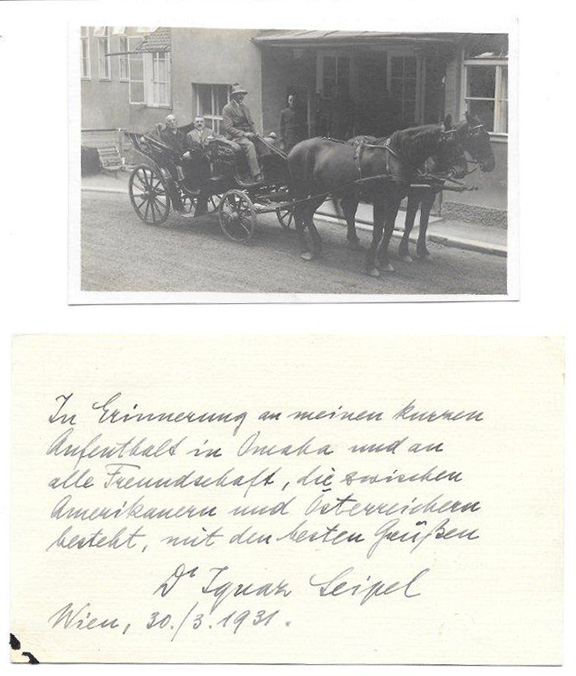 In Erinnerung an meinen kurzen
Aufenthalt in Omaha und an
alle Freundschaft, die zwischen
Amerikanern und Österreichern
besteht, mit den besten Grüßen
Dr Ignaz Seipel
Wien, 30./3. 1931.